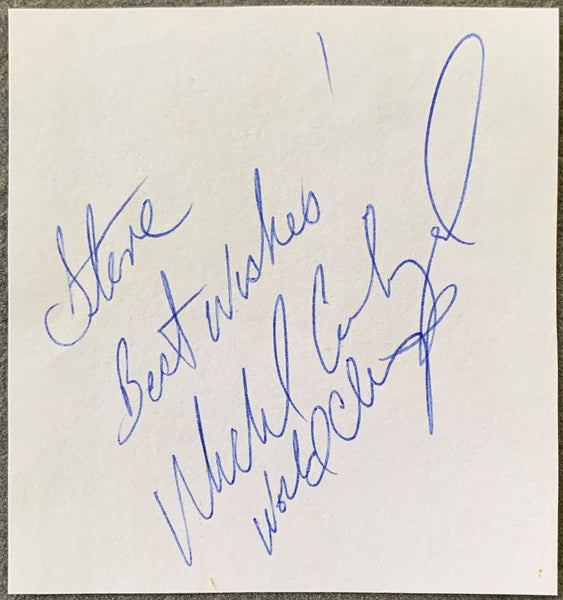 Steve
Best Wishes
Michael Carbajal
World Champ